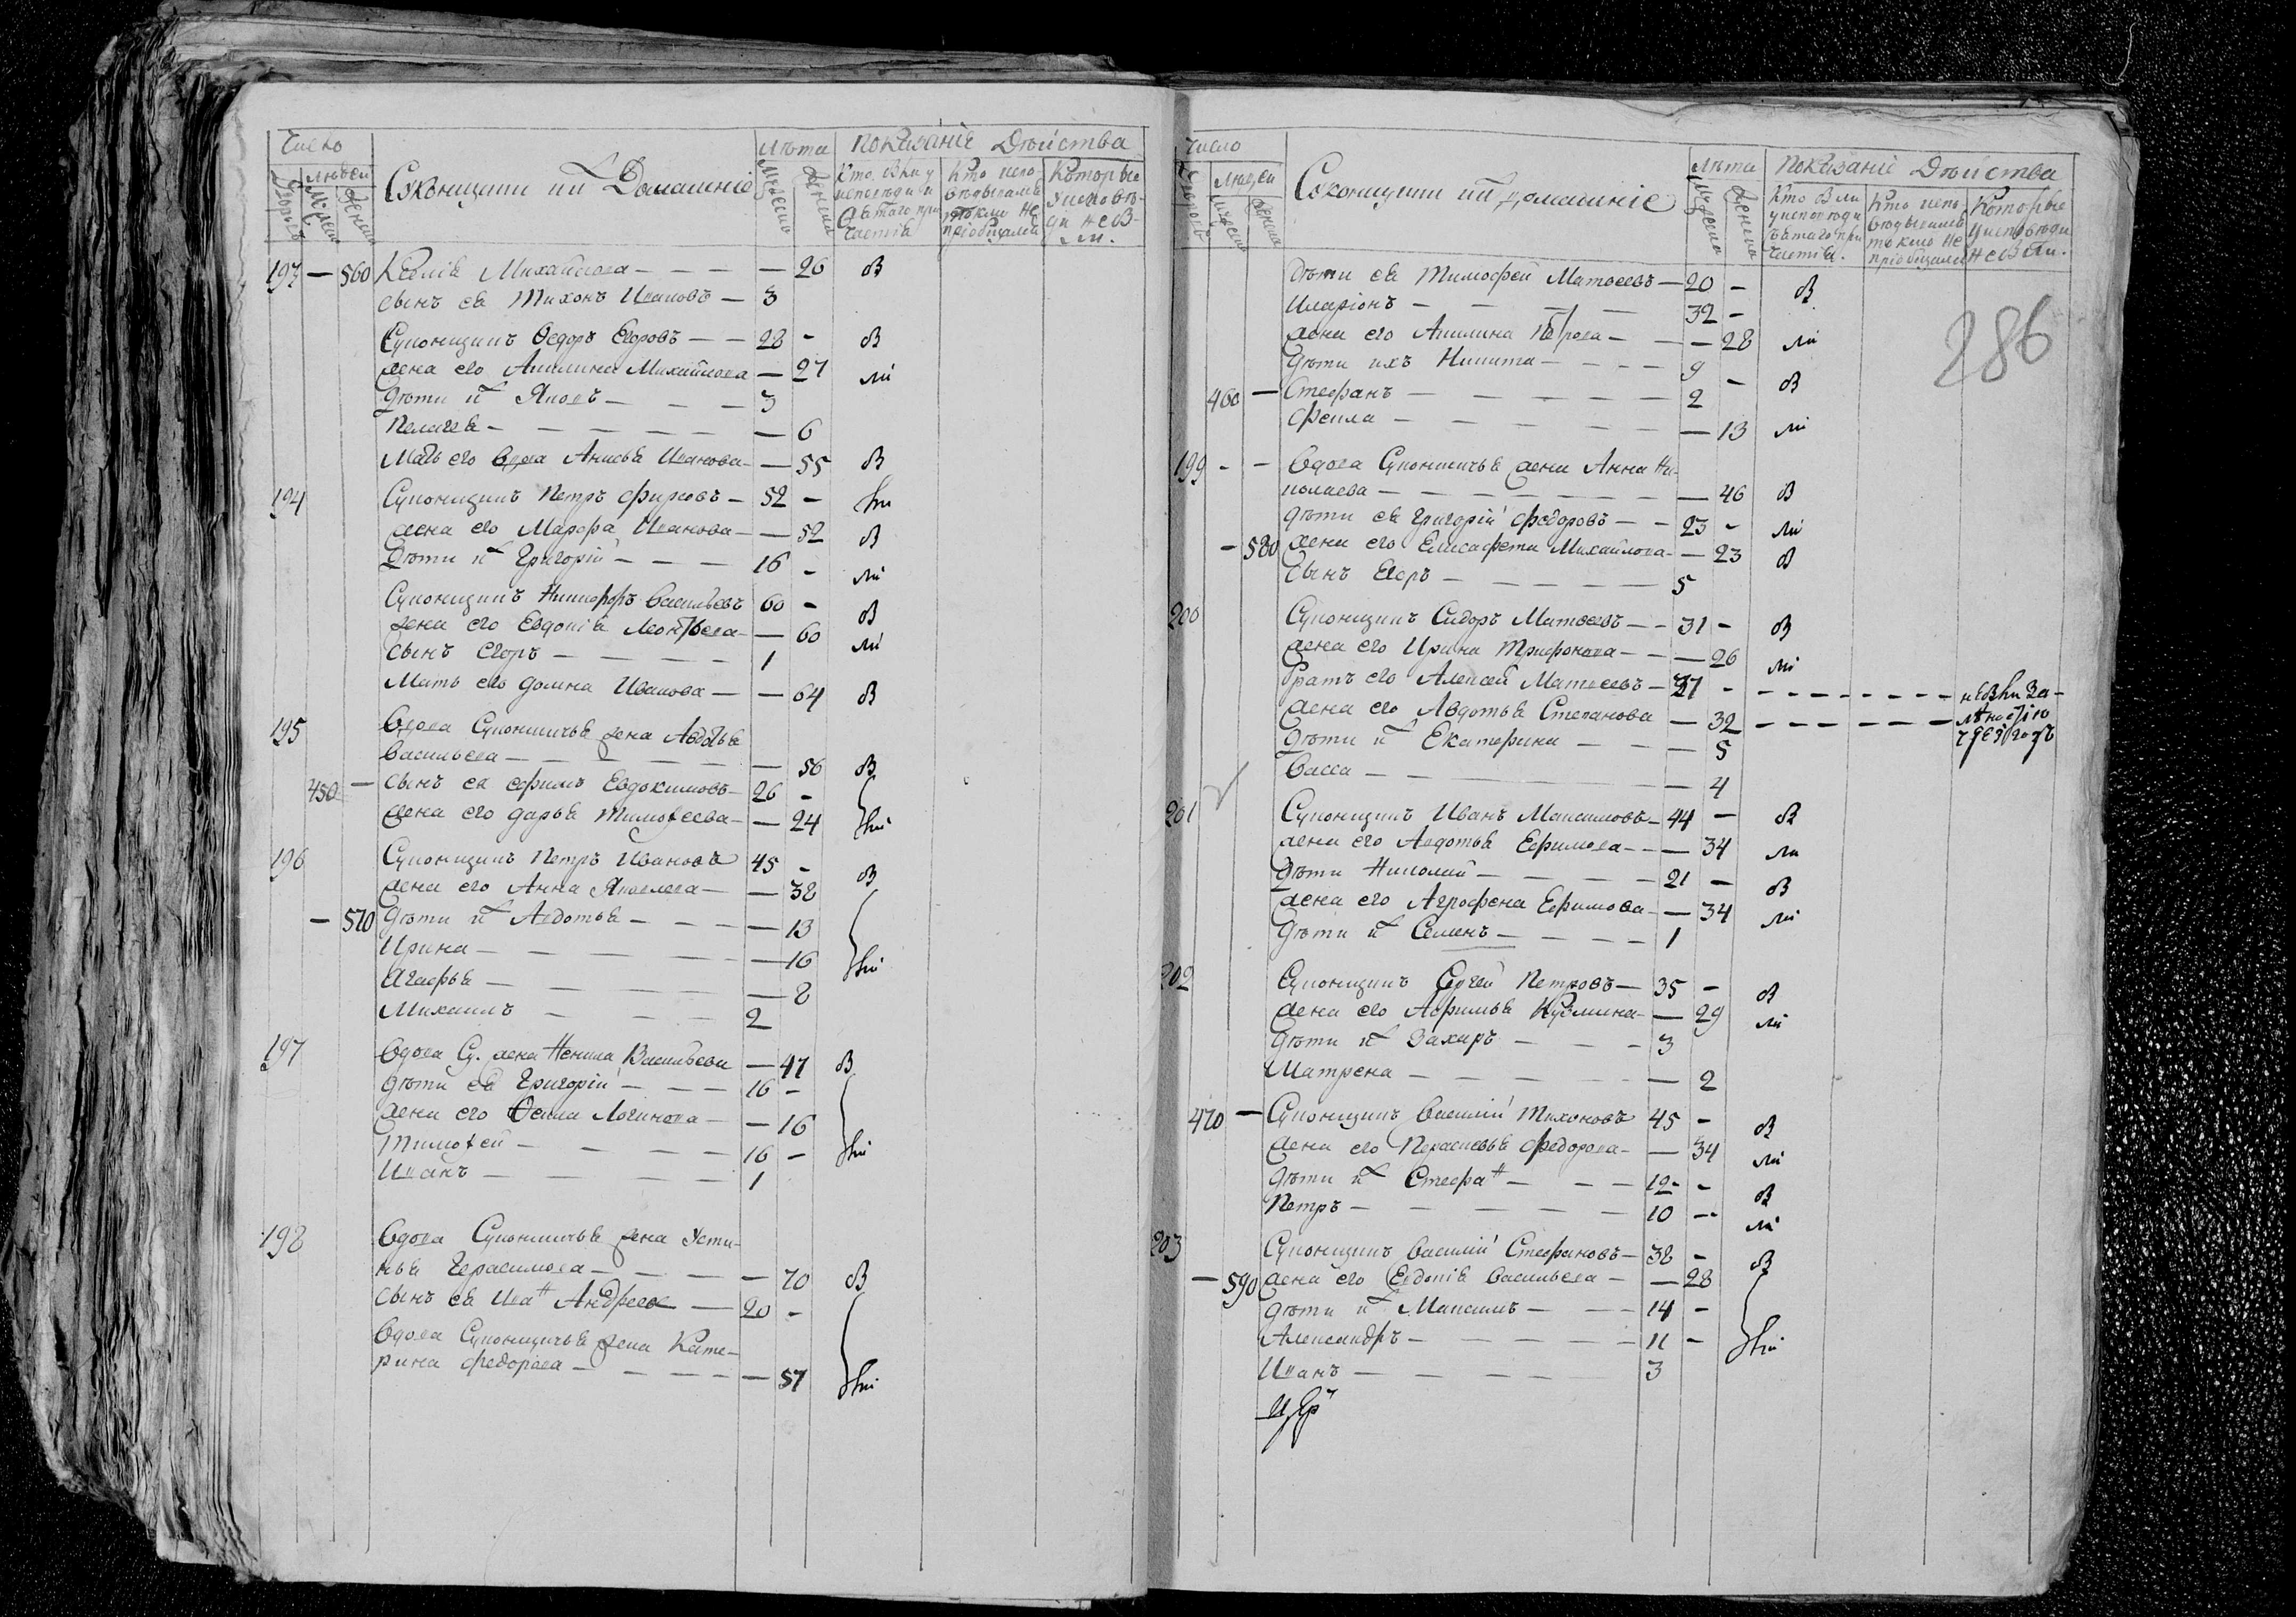 Число
Людей
Дворовъ
Мужеска
Женска
Суконщики и их Домашніе
Лѣта
Мужеска
Женска
Показаніе Действа
Кто были у исповѣди и святаго причастія
Кто исповѣдывались токмо не пріобщались
Которые у исповѣди не были
193 — 560 Михайлова — — — — 26 в
сынъ ея Тихонъ Ивановъ — 3
Суконщикъ Ѳедоръ Егоровъ — — 28 - в
жена его Акилина Михайлова — 27 ли
дѣти их Яковъ — — — 3
Пелагея — — — — — — 6
Мать его вдова Анисья Иванова — — 55 в
194 Суконщикъ Петръ Фирсовъ — 52 -
жена его Марфа Иванова — — 52 в
Дѣти их Григорій — — — 16 - ли
Суконщикъ Никифоръ Васильевъ 60 - в
жена его Евдокія Леонтьева — — 60 ли
сынъ Егоръ — — — — 1
Мать его Иванова — — 64 в
195 Вдова Суконничья жена Авдотья
Васильева — — — — — 56 в
450 — сынъ ея Ефимъ Евдокимовъ — 26 -
жена его Дарья Тимоѳеева — — 24
196 Суконщикъ Петръ Ивановъ 45 - в
жена его Анна Яковлева — — 38
— 570 дѣти их Авдотья — — — — 13
Ирина — — — — — 16
Агафья — — — — — 8
Михаилъ — — — 2
197 Вдова Су. жена Ненила Васильева — 47 в
дѣти ея Григорій — — — 16 -
жена его Логинова — — 16
Тимоѳей — — — — 16 -
Иванъ — — — — 1
198 Вдова Суконничья жена Усти-
нья Герасимова — — — — 70 в
сынъ ея Иван Андреев — 20 -
Вдова Суконничья жена Кате-
рина Федорова — — — — 57
Число
Людей
Дворовъ
Мужеска
Женска
Суконщики и их домашніе
Лѣта
Мужеска
Женска
Показаніе Действа
Кто были у исповѣди и святаго причастія.
Кто исповѣдывались токмо не пріобщались
Которые у исповѣди не были.
286
Дѣти ея Тимофей Матвеевъ — 20 - в
Иларіонъ — — — — 32 -
жена его Акилина Петрова — — — 28 ли
Дѣти ихъ Никита — — — — 9 - в
460 — Стефанъ — — — — — 2
Фекла — — — — — — 13 ли
199 - - Вдова Суконничья жена Анна Ни-
колаева — — — — — — — 46 в
дѣти ея Григорій Федоровъ — — 23 - ли
— 580 жена его Елисафета Михайлова — — 23 в
сынъ Егоръ — — — — — 5
200 Суконщикъ Сидоръ Матвеевъ — — 31 - в
жена его Ирина Трифонова — — — 26 ли
братъ его Алексей Матвеевъ — 37 - - - - - - - - - небыли за-
жена его Авдотья Степанова — 32 — — — — — — лѣностію
Дѣти их Екатерина — — — 5
Васса — — — — — — 4
201 Суконщикъ Иванъ Максимовъ — 44 — в
жена его Авдотья Ефимова — — — 34 ли
Дѣти Николай — — — — — 21 — в
жена его Агрофена Ефимова — — 34 ли
Дѣти их Семенъ — — — — 1
202 Суконщикъ Сергей Петровъ — 35 - в
жена его Афимья Кузмина — — 29 ли
дѣти их Захаръ — — — 3
Матрена — — — — — — 2
470 — Суконщикъ Василій Тихоновъ 45 - в
жена его Парасковья Федорова — — 34 ли
дѣти их Стефан — — — 12 - - в
Петръ — — — — — — 10 — ли
203 Суконщикъ Василій Стефановъ — 38 - в
— 590 жена его Евдокія Васильева — — 28
дѣти их Максимъ — — — 14 -
Александръ — — — — — 11 -
Иванъ — — — — 3